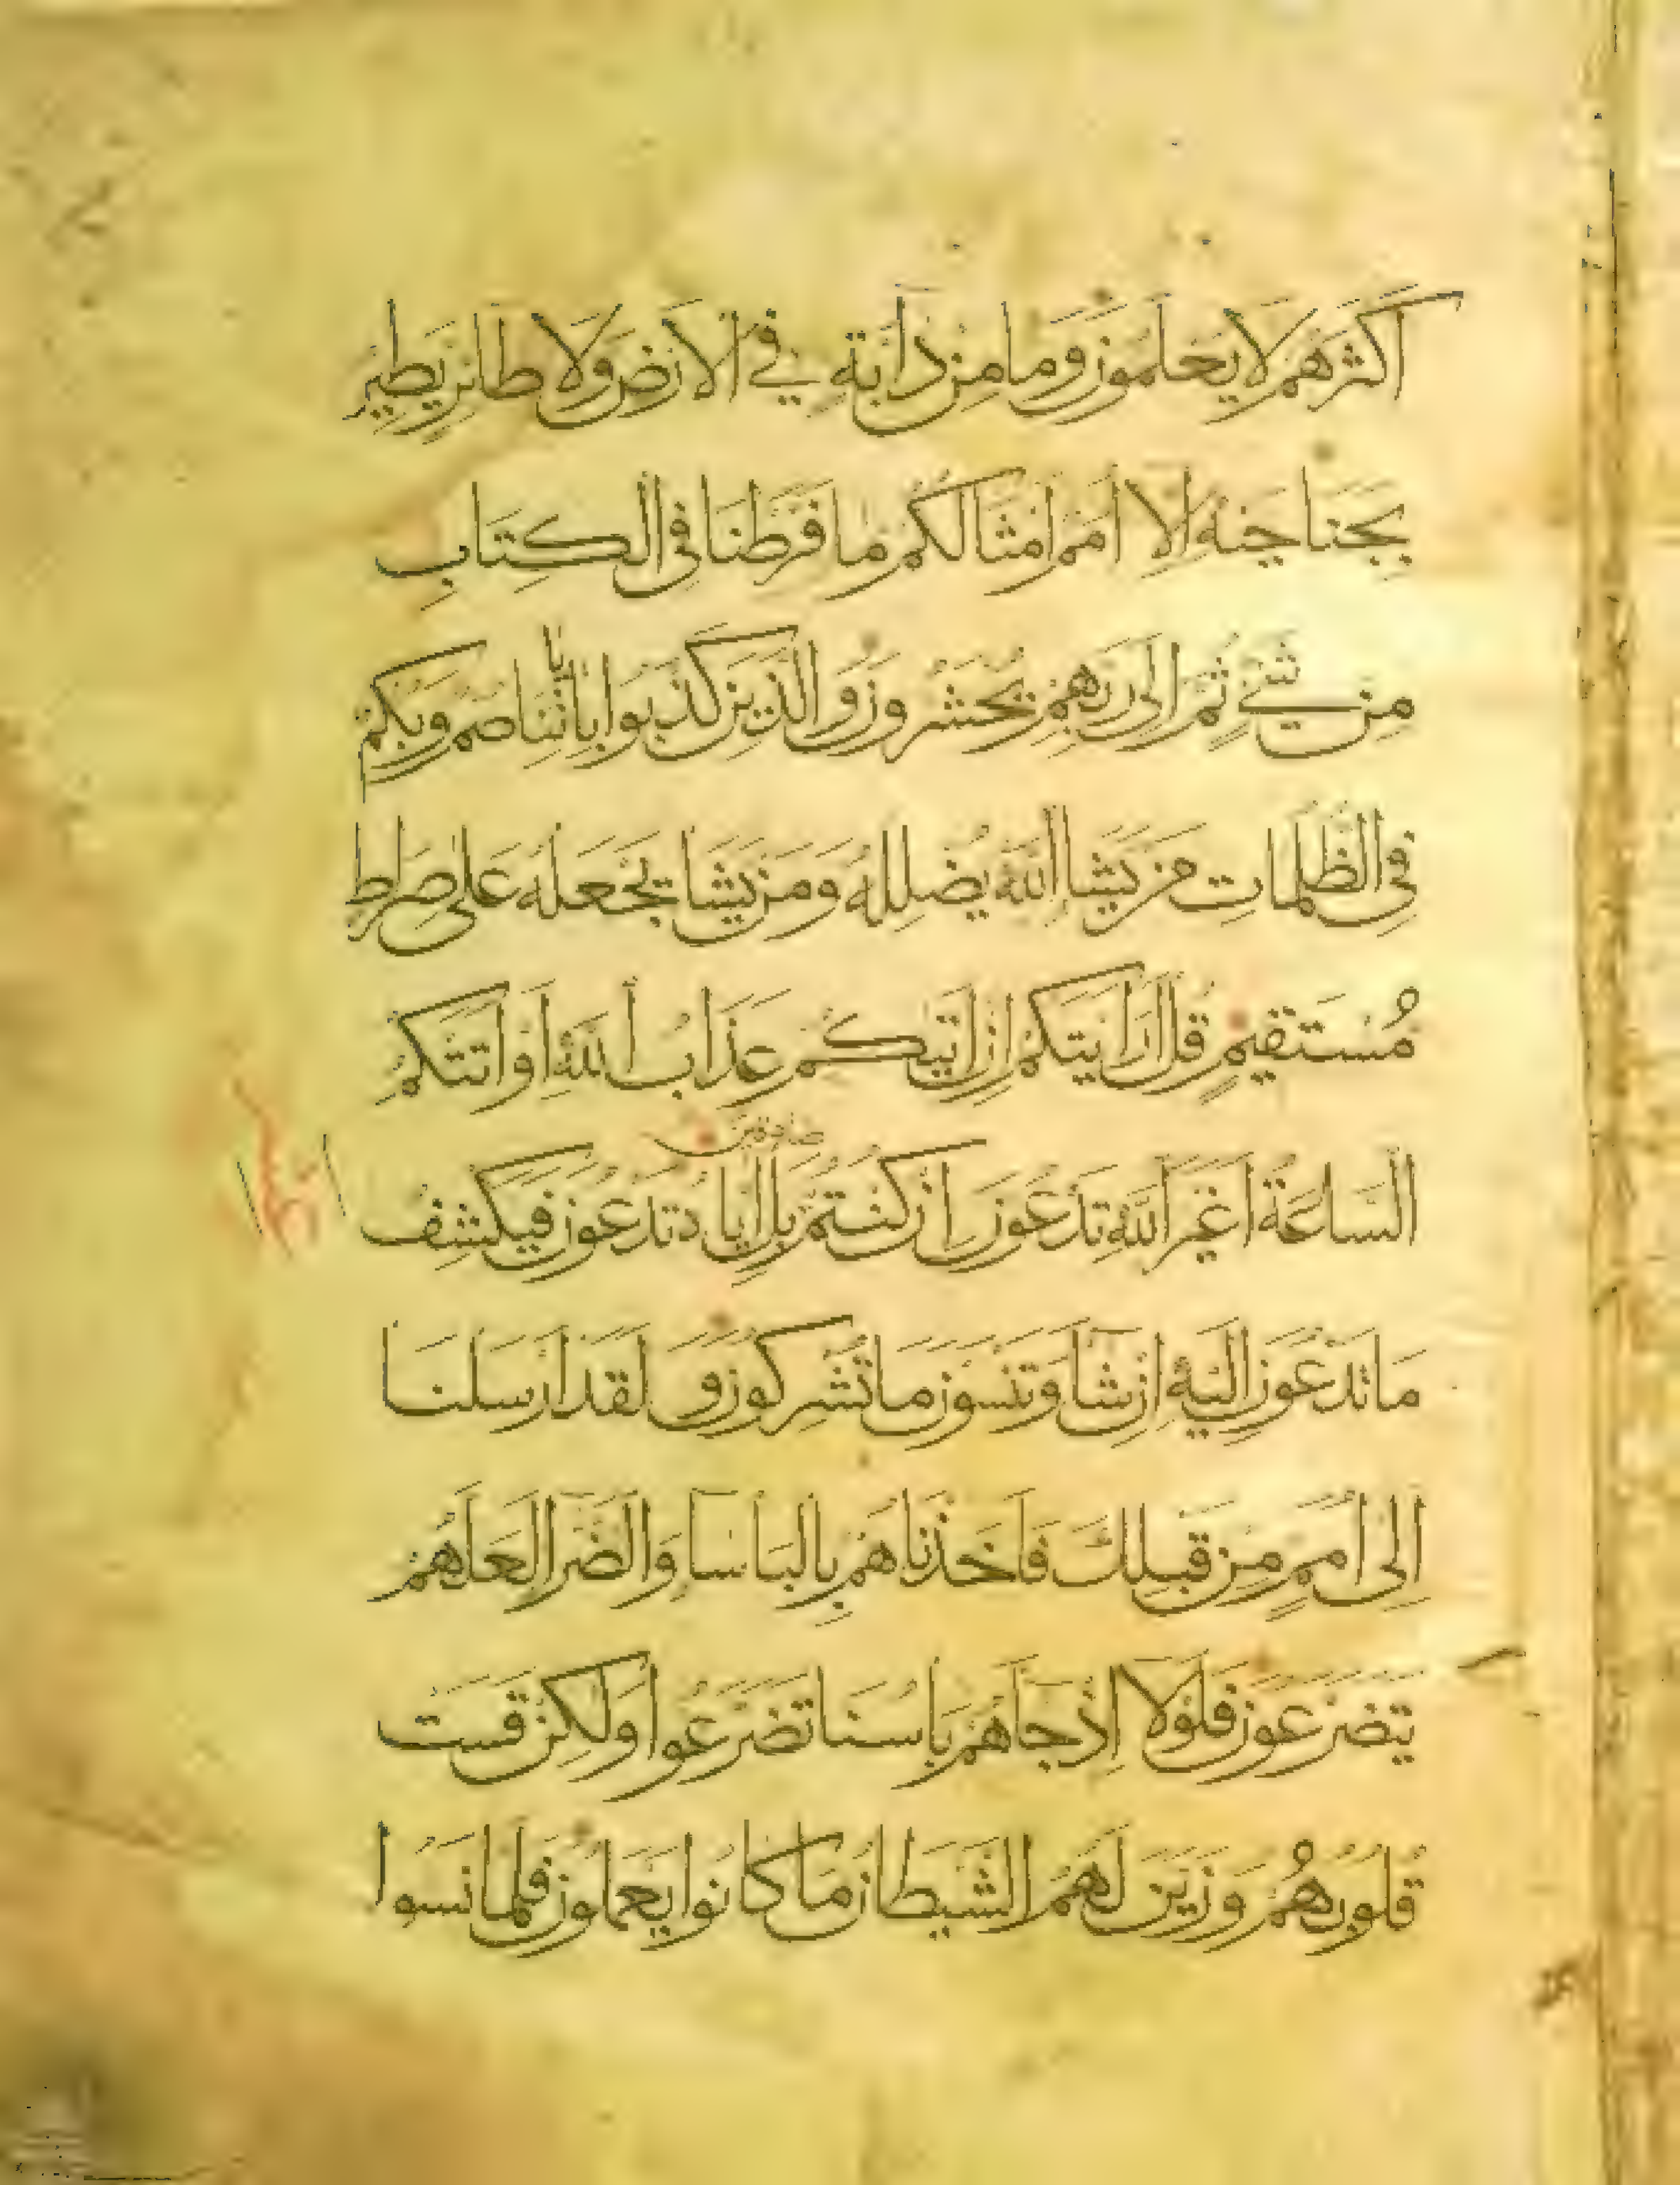 اكثرهم لا يعلمون وما من دابة في الارض ولا طائر يطير
بجناحيه الا امم امثالكم ما فرطنا في الكتاب
من شيء ثم الى ربهم يحشرون والذين كذبوا باياتنا صم وبكم
في الظلمات من يشا الله يضلله ومن يشا يجعله على صراط
مستقيم قل ارايتكم ان اتيكم عذاب الله او اتتكم
صادقين
الساعة اغير الله تدعون ان كنتم بل اياه تدعون فيكشف
ما تدعون اليه ان شا وتنسون ما تشركون ولقد ارسلنا
الى امم من قبلك فاخذناهم بالباسا والضرا لعلهم
يتضرعون فلولا اذ جاهم باسنا تضرعوا ولكن قست
قلوبهم وزين لهم الشيطان ما كانوا يعملون فلما نسوا